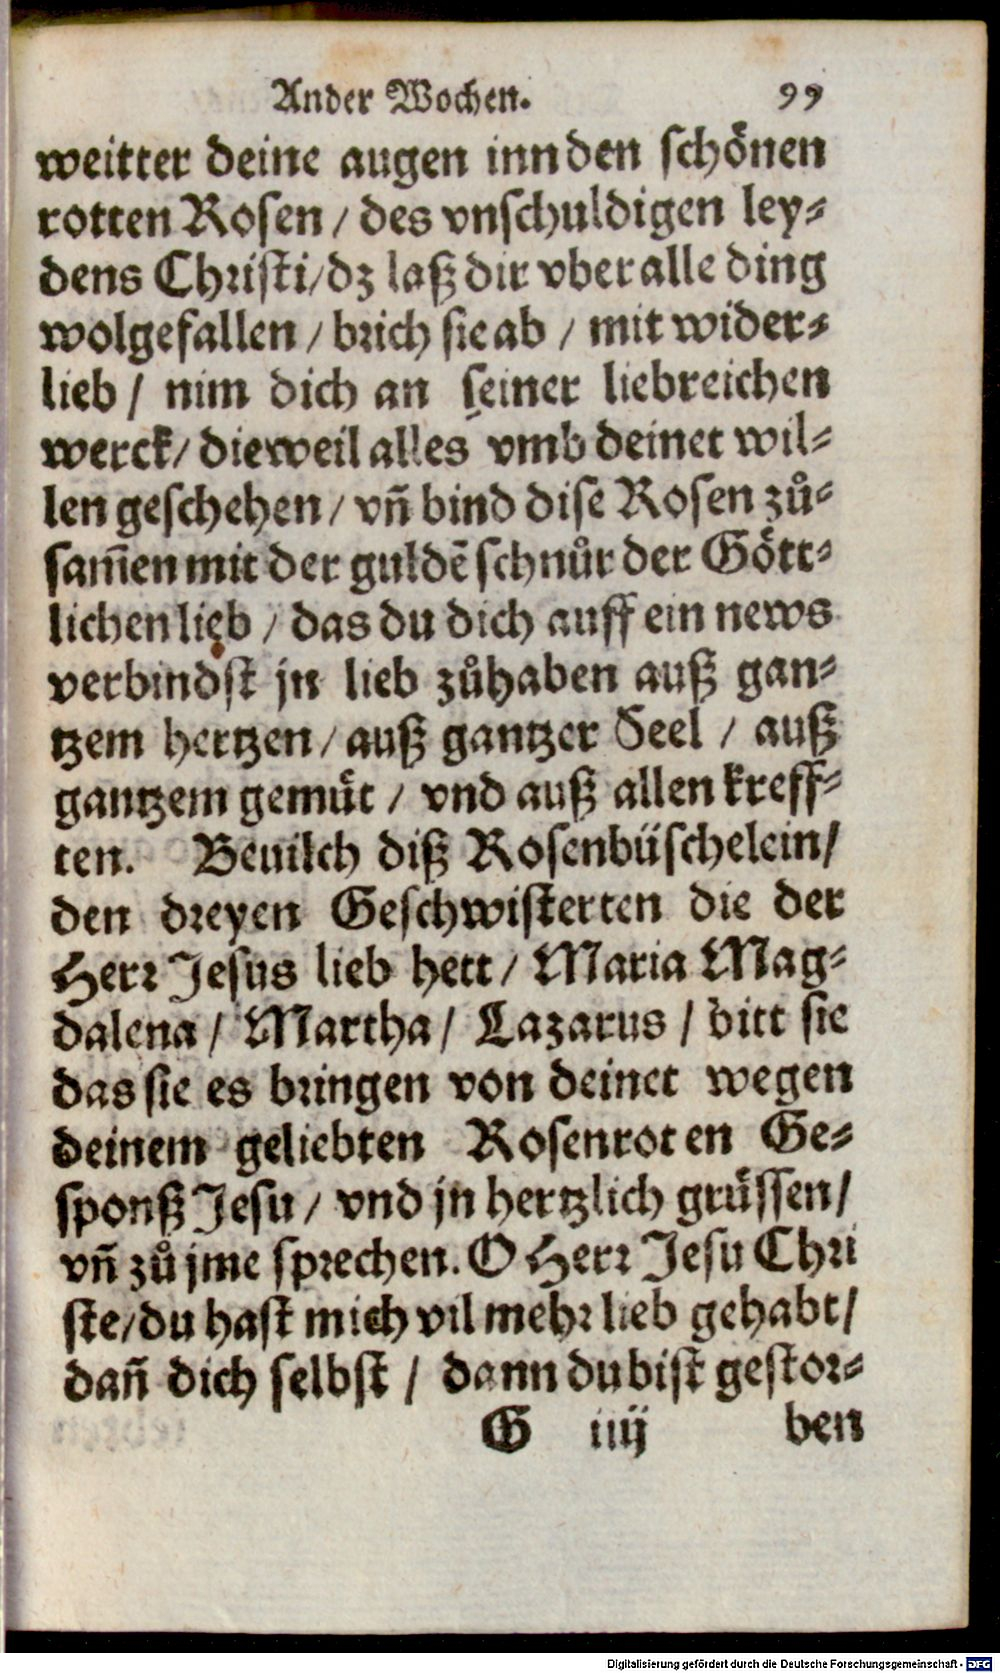 Ander Wochen. 99
weitter deine augen inn den schönen
rotten Rosen / des vnschuldigen ley-
dens Christi / dz laß dir vber alle ding
wolgefallen / brich sie ab / mit wider-
lieb / nim dich an seiner liebreichen
werck / dieweil alles vmb deinet wil-
len geschehen / vñ bind dise Rosen zů-
sam̄en mit der guldē schnůr der Gött-
lichen lieb / das du dich auff ein news
verbindst jn lieb zůhaben auß gan-
tzem hertzen / auß gantzer Seel / auß
gantzem gemüt / vnd auß allen kreff-
ten. Beuilch diß Rosenbüschelein /
den dreyen Geschwisterten die der
Herr Jesus lieb hett / Maria Mag-
dalena / Martha / Lazarus / bitt sie
das sie es bringen von deinet wegen
deinem geliebten Rosenroten Ge-
sponß Jesu / vnd jn hertzlich grüssen /
vñ zů jme sprechen. O Herr Jesu Chri
ste / du hast mich vil mehr lieb gehabt /
dañ dich selbst / dann du bist gestor-
G iiij ben
Digitalisierung gefördert durch die Deutsche Forschungsgemeinschaft - DFG